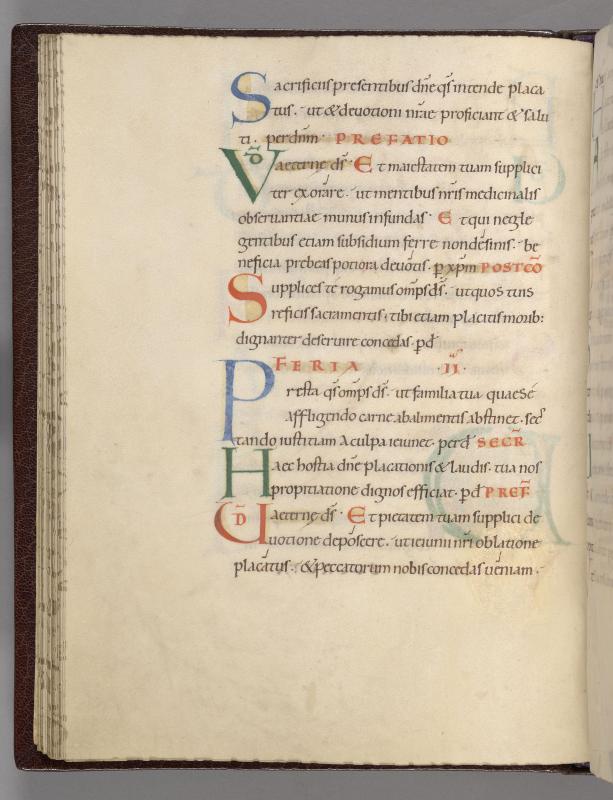 Sacrificiis presentibus dn̄e qs̄ intende placa
tus. ut & deuotioni nr̄ae proficiant & salu
ti. per dnm̄ PREFATIO
VD̄ aeterne ds̄. Et maiestatem tuam supplici
ter exorare. ut mentibus nr̄is medicinalis
obseruantiae munus infundas. Et qui negle
gentibus etiam subsidium ferre non desinis. be
neficia prebeas potiora deuotis. p xp̄m POSTCŌ
Supplices te rogamus omp̄s ds̄. ut quos tuis
reficis sacramentis. tibi etiam placitis morib:
dignanter deseruire concedas. p d̄
FERIA .II.
Presta qs̄ omp̄s ds̄. ut familia tua quae se
affligendo carne ab alimentis abstinet. sec
tando iustitiam a culpa ieiunet. per d̄ SECR̄
Haec hostia dn̄e placationis & laudis. tua nos
propitiatione dignos efficiat. p d̄ PREF̄
UD̄ aeterne ds̄. Et pietatem tuam supplici de
uotione deposcere. ut ieiunii nr̄i oblatione
placatus. & peccatorum nobis concedas ueniam.